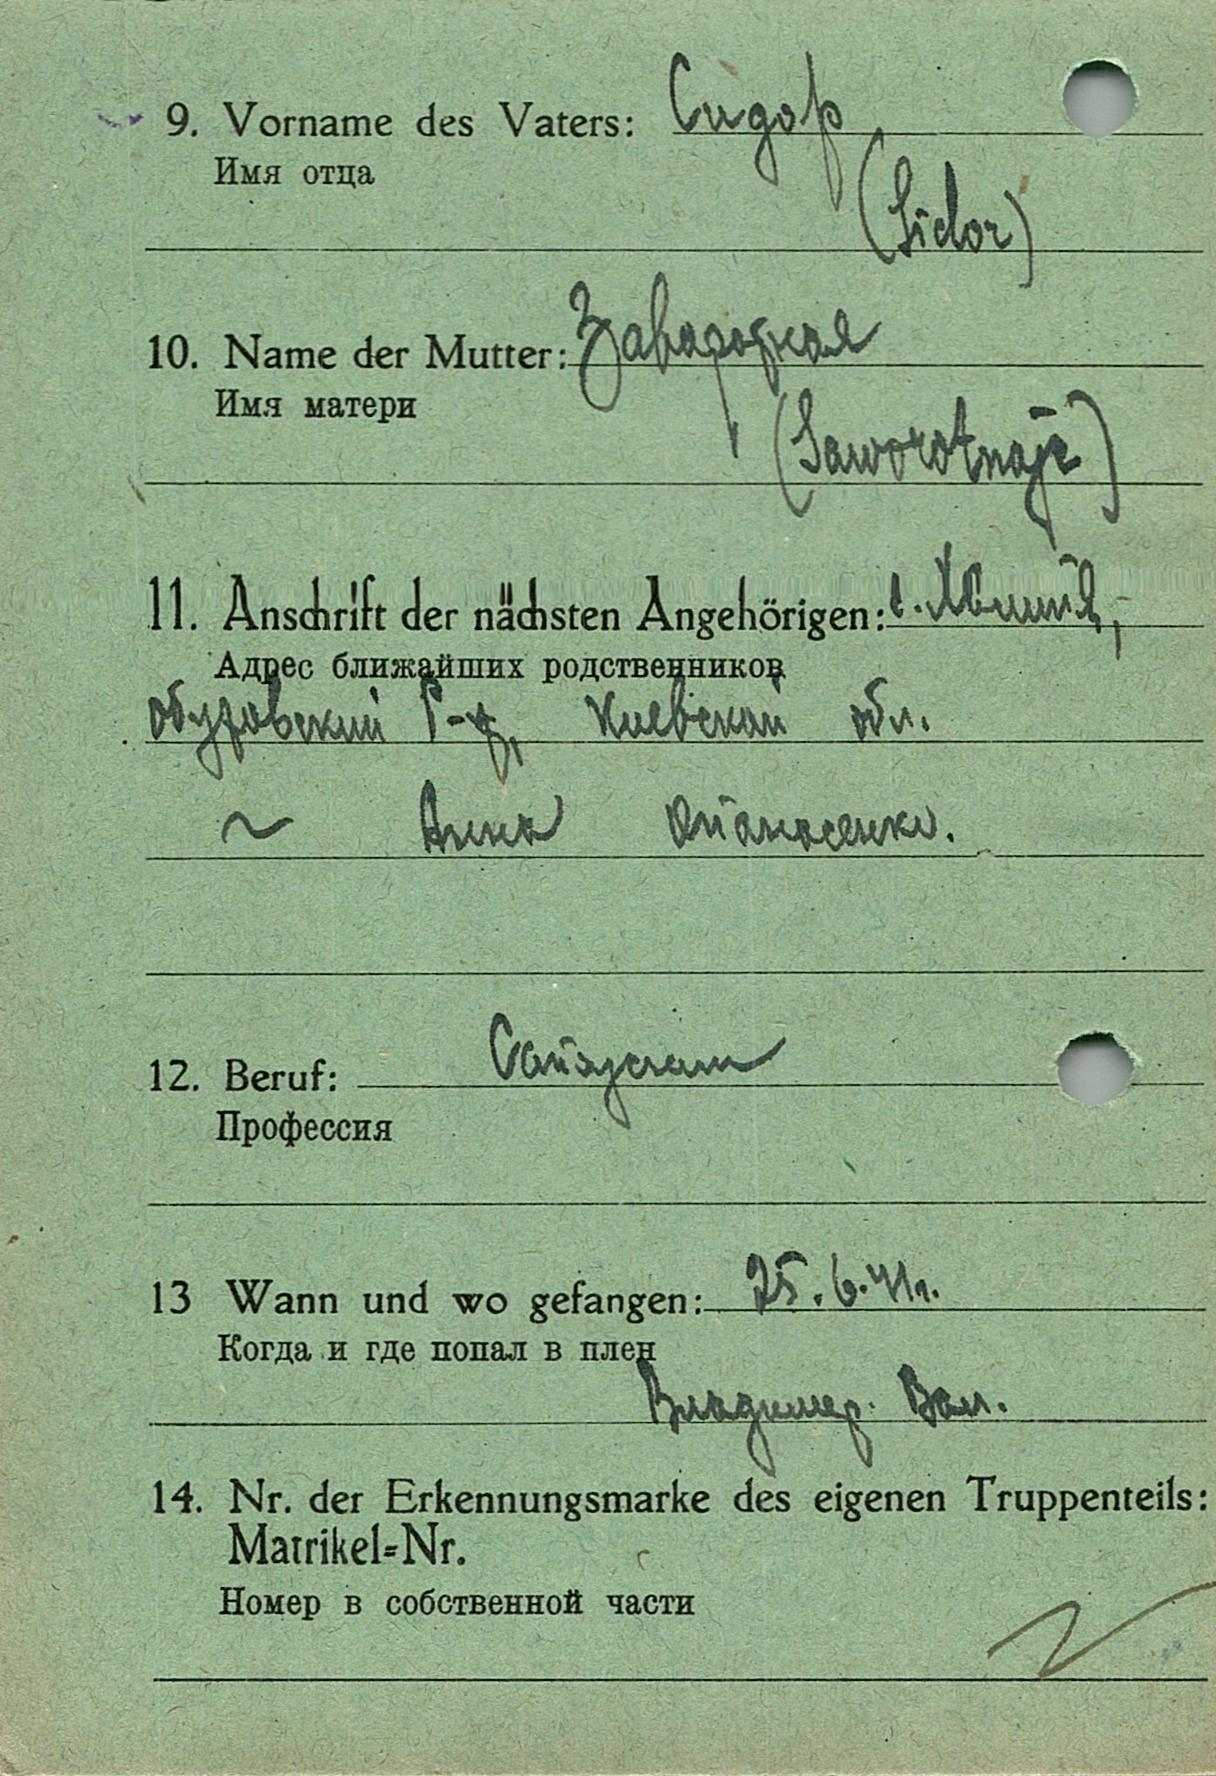 9. Vorname des Vaters: Сидор
Имя отца
(Sidor)
10. Name der Mutter: Заваротная
Имя матери
(Saworotnaja)
11. Anschrift der nächsten Angehörigen: с.
Адрес ближайших родственников
обуховский р-н, Киевской обл.
Анна Опанасенко.
12. Beruf:
Профессия
13 Wann und wo gefangen: 25.6.41г.
Когда и где попал в плен
Владимир. Вол.
14. Nr. der Erkennungsmarke des eigenen Truppenteils:
Matrikel=Nr.
Номер в собственной части